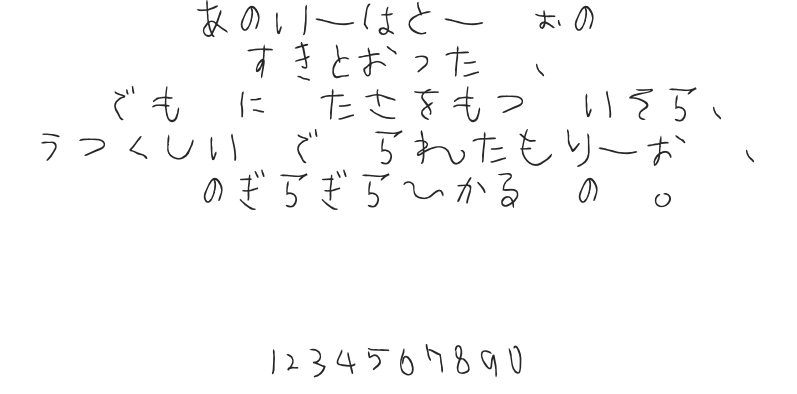 あのいーはとー ぉの
すきとおった 、
でも に たさをもつ いそら、
うつくしい で られたもりーお 、
のぎらぎらひかる の 。
1234567890